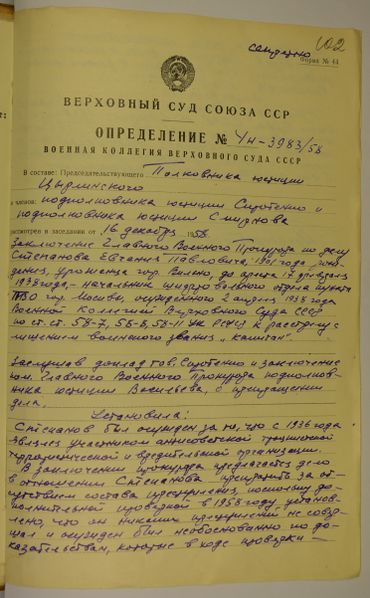 секретно 102
Форма № 44
ВЕРХОВНЫЙ СУД СОЮЗА ССР
ОПРЕДЕЛЕНИЕ № 4н-3983/58
ВОЕННАЯ КОЛЛЕГИЯ ВЕРХОВНОГО СУДА СССР
В составе: Председательствующего Полковника юстиции
Цырлинского
и членов: подполковника юстиции
и подполковника юстиции Смирнова
рассмотрев в заседании от 16 декабря 1958
заключение Главного Военного Прокурора по делу
Степанова Евгения Павловича, 1901 года рож-
дения, уроженца гор. Вильно, до ареста 17
1937 года, – начальник отдела пункта
ПВО гор. Москвы, осужденного 2 апреля 1938 года
Военной Коллегией Верховного Суда СССР
по ст. ст. 58-7, 58-8, 58-11 УК РСФСР к расстрелу с
лишением воинского звания „капитан“.
Заслушав доклад тов. и заключение
пом. Главного Военного Прокурора подполков-
ника юстиции Васильева, о прекращении
дела,
Установила:
Степанов был осужден за то, что с 1936 года
являлся участником антисоветской троцкистской
террористической и вредительской организации.
В заключении прокурора предлагается дело
в отношении Степанова прекратить за от-
сутствием состава преступления, поскольку до-
полнительной проверкой в 1958 году, установ-
лено, что он никаких преступлений не совер-
шал и осужден был необоснованно по до-
казательствам, которые в ходе проверки –